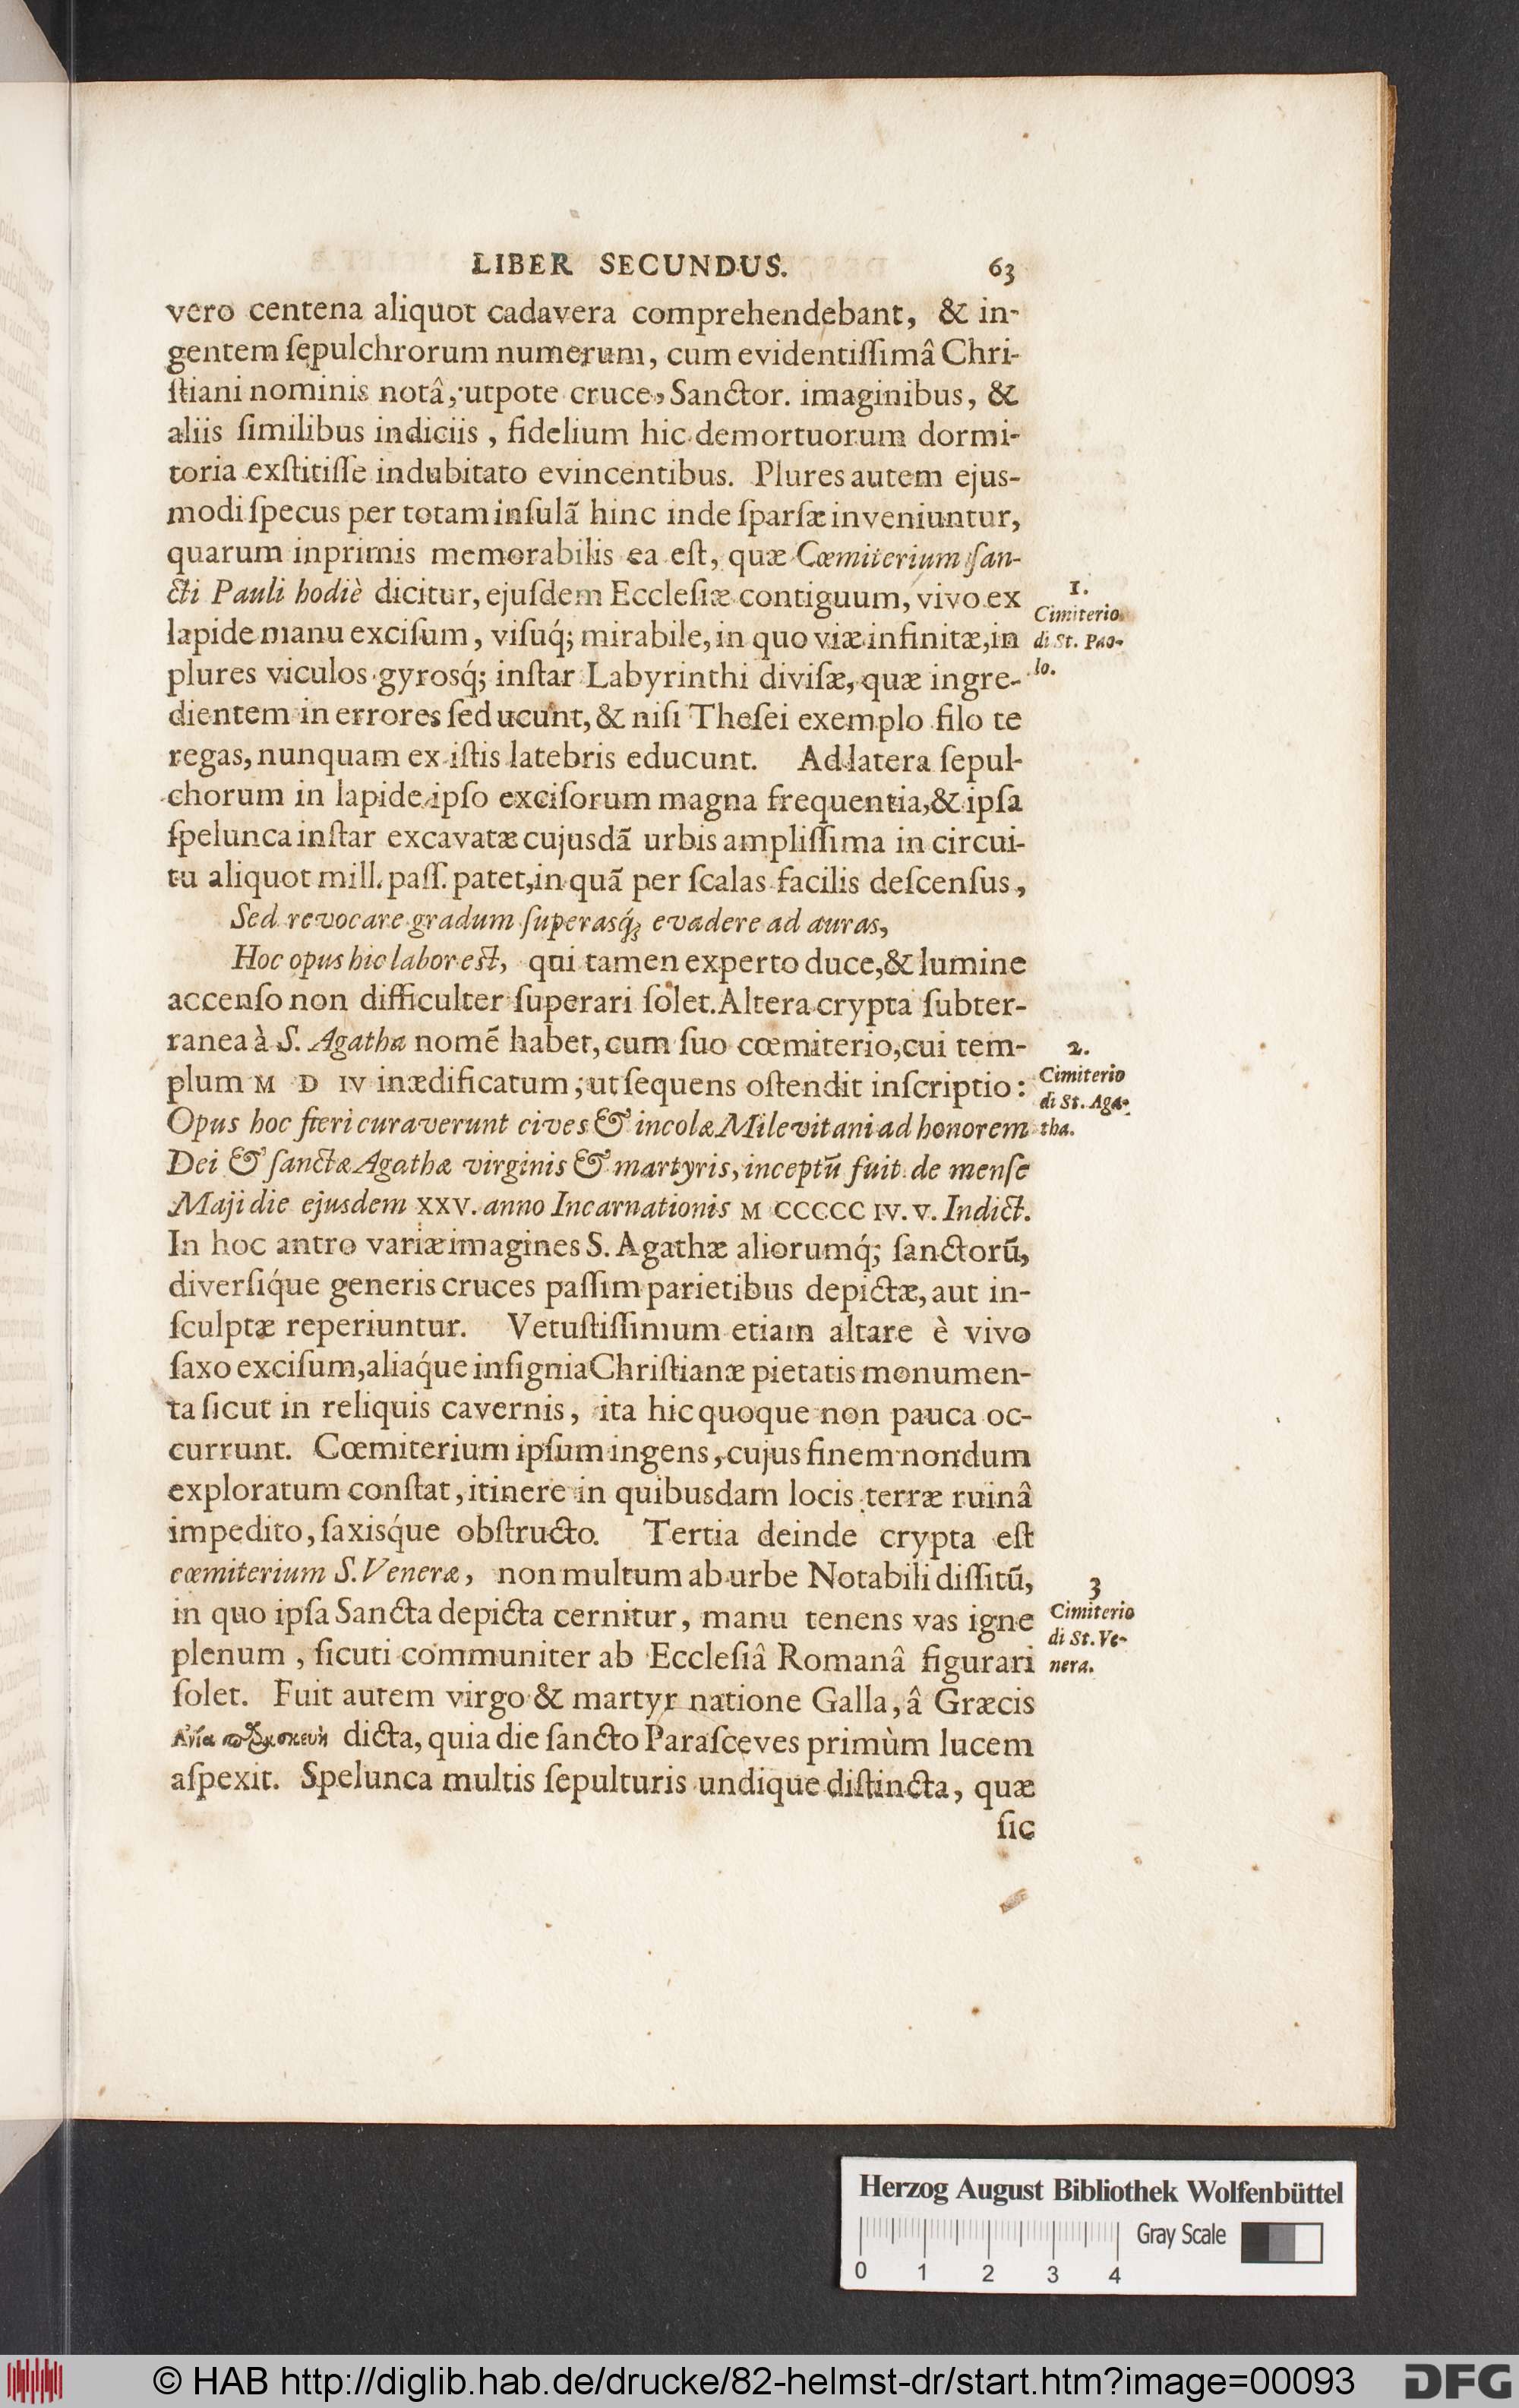 LIBER SECUNDUS. 63
vero centena aliquot cadavera comprehendebant, & in-
gentem ſepulchrorum numerum, cum evidentiſſimâ Chri-
ſtiani nominis notâ, utpote cruce, Sanctor. imaginibus, &
aliis ſimilibus indiciis, fidelium hic demortuorum dormi-
toria exſtitiſſe indubitato evincentibus. Plures autem ejus-
modi ſpecus per totam inſulã hinc inde ſparſæ inveniuntur,
quarum inprimis memorabilis ea eſt, quæ Cœmiterium ſan-
cti Pauli hodiè dicitur, ejuſdem Eccleſiæ contiguum, vivo ex
lapide manu exciſum, viſuq́; mirabile, in quo viæ infinitæ, in
plures viculos gyrosq́; inſtar Labyrinthi diviſæ, quæ ingre-
dientem in errores ſeducunt, & niſi Theſei exemplo filo te
regas, nunquam ex iſtis latebris educunt. Ad latera ſepul-
chorum in lapide ipſo exciſorum magna frequentia, & ipſa
ſpelunca inſtar excavatæ cujusdã urbis ampliſſima in circui-
tu aliquot mill. paſſ. patet, in quã per ſcalas facilis deſcenſus,
Sed revocare gradum ſuperasq́; evadere ad auras,
Hoc opus hic labor eſt, qui tamen experto duce, & lumine
accenſo non difficulter ſuperari ſolet. Altera crypta ſubter-
ranea à S. Agatha nomẽ habet, cum ſuo cœmiterio, cui tem-
plum M D IV inædificatum; ut ſequens oſtendit inſcriptio:
Opus hoc fieri curaverunt cives & incolæ Milevitani ad honorem
Dei & ſanctæ Agathæ virginis & martyris, inceptũ fuit de menſe
Maji die ejusdem XXV. anno Incarnationis M CCCCC IV. V. Indict.
In hoc antro variæ imagines S. Agathæ aliorumq́; ſanctorũ,
diverſiq́ue generis cruces paſſim parietibus depictæ, aut in-
ſculptæ reperiuntur. Vetuſtiſſimum etiam altare è vivo
ſaxo exciſum, aliaq́ue inſignia Chriſtianæ pietatis monumen-
ta ſicut in reliquis cavernis, ita hic quoque non pauca oc-
currunt. Cœmiterium ipſum ingens, cujus finem nondum
exploratum conſtat, itinere in quibusdam locis terræ ruinâ
impedito, ſaxisq́ue obſtructo. Tertia deinde crypta eſt
cœmiterium S. Veneræ, non multum ab urbe Notabili diſſitũ,
in quo ipſa Sancta depicta cernitur, manu tenens vas igne
plenum, ſicuti communiter ab Eccleſiâ Romanâ figurari
ſolet. Fuit autem virgo & martyr natione Galla, â Græcis
Ἁγία παρασκευὴ dicta, quia die ſancto Paraſceves primùm lucem
aſpexit. Spelunca multis ſepulturis undique diſtincta, quæ
ſic
1.
Cimiterio
di St. Pao-
lo.
2.
Cimiterio
di St. Aga-
tha.
3
Cimiterio
di St. Ve-
nera.
Herzog August Bibliothek Wolfenbüttel
Gray Scale
0 1 2 3 4
© HAB http://diglib.hab.de/drucke/82-helmst-dr/start.htm?image=00093
DFG